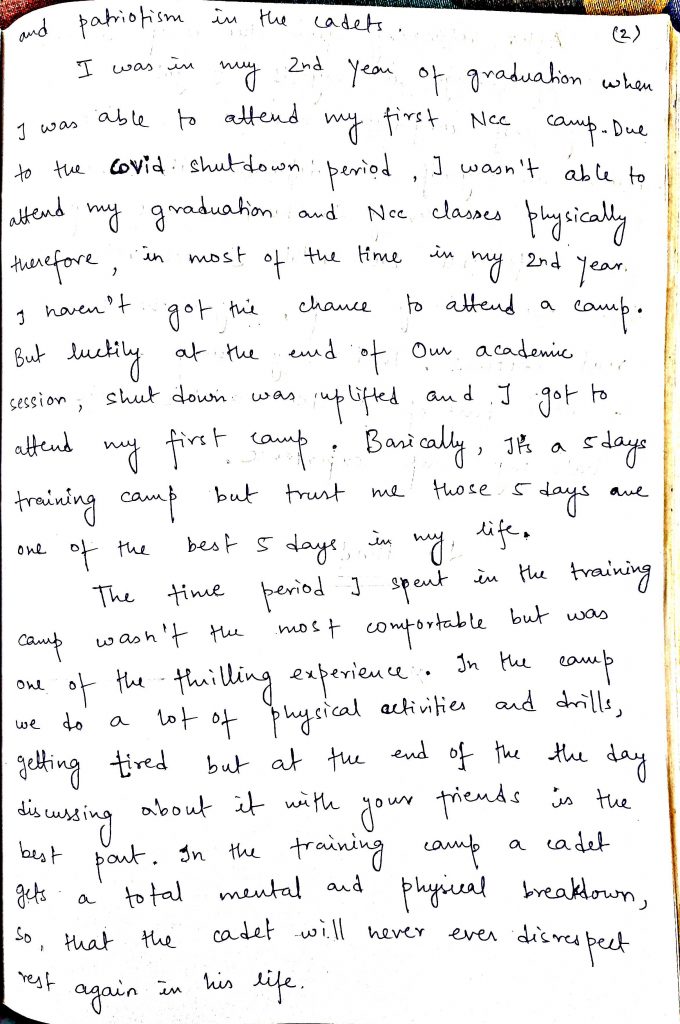 and patriotism in the cadets. (2)
I was in my 2nd Year of graduation when
I was able to attend my first Ncc camp. Due
to the Covid shutdown period, I wasn't able to
attend my graduation and Ncc classes physically
therefore, in most of the time in my 2nd Year.
I haven't got the chance to attend a camp.
But luckily at the end of Our academic
session, shut down was uplifted and I got to
attend my first camp. Basically, It's a 5 days
training camp but trust me those 5 days are
one of the best 5 days in my life.
The time period I spent in the training
camp wasn't the most comfortable but was
one of the thrilling experience. In the camp
we do a lot of physical activities and drills,
getting tired but at the end of the the day
discussing about it with your friends is the
best part. In the training camp a cadet
gets a total mental and physical breakdown,
so, that the cadet will never ever disrespect
rest again in his life.